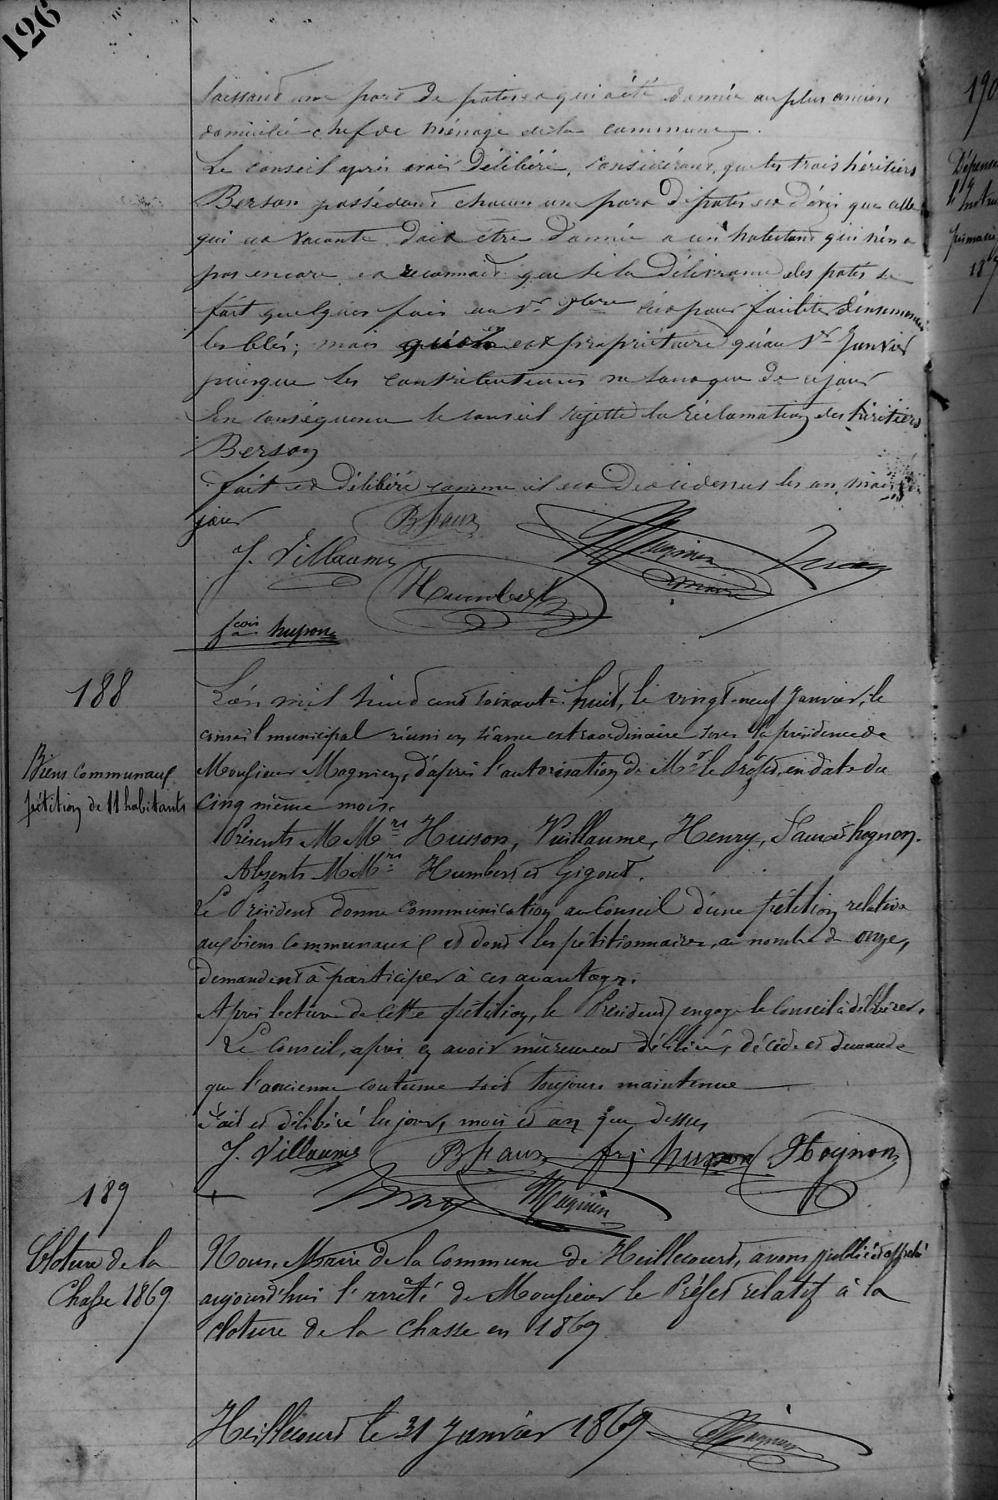 126
laissant une part de pâtis a été donnée au plus ancien
domicilié chef de ménage de la commune.
Le conseil après avoir délibéré, considérant que les trois héritiers
Berson possédant chacun une part de pâtis que celle
qui est vacante doit être donnée a un habitant qui n'en a
pas encore et reconnait que si la délivrance des patis se
fait quelques fois au 1er 9bre c'est pour faciliter d'ensemencer
les blés; mais est propriétaire qu'au 1er Janvier
puisque les contributions de ce jour
En conséquence le conseil rejette la réclamation des héritiers
Berson
fait et délibéré comme il est dit ci dessus les an, mois
jour
B faux
J. Villaume
Magnien
maire
Humbert
fcois husson
188
Biens communaux
pétition de 11 habitants
L'an mil huit cent soixante huit, le vingt-neuf Janvier, le
conseil municipal réuni en séance extraordinaire sous la présidence de
Monsieur Magnien, d'après l'autorisation de Mr le Préfet, en date du
cinq même mois.
Présents MMrs Husson, Vuillaume, Henry, Faux et hognon.
Absents MMrs Humbert et Gigout.
Le Président donne communication au Conseil d'une pétition relative
aux biens communaux et dont les pétitionnaires, au nombre de onze,
demandent à participer à ces avantages.
Après lecture de cette pétition, le Président engage le Conseil à délibérer.
Le Conseil, après en avoir mûrement délibéré, décide et demande
que l'ancienne coutume soit toujours maintenue
Fait et délibéré les jour, mois et an que dessus
J. Villaume B faux husson Hognon
Magnien
189
Cloture de la
Chasse 1869
Nous, Maire de la Commune de Heillecourt, avons publié et affiché
aujourd'hui l'arrêté de Monsieur le Préfet relatif à la
cloture de la chasse en 1869
Heillecourt le 31 Janvier 1869
Magnien
190
Dépenses
primaire